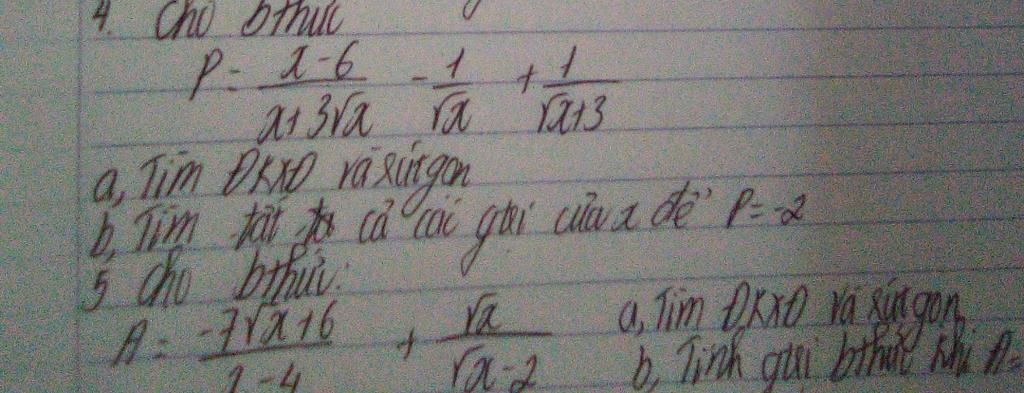 4. Cho bthức
P = \frac{x-6}{x+3√x} - \frac{1}{√x} + \frac{1}{√x+3}
a, Tìm ĐKXĐ và rút gọn
b, Tìm tất cả các gtrị của x để P = -2
5 Cho bthức:
A = \frac{-7√x+6}{x-4} + \frac{√x}{√x-2} a, Tìm ĐKXĐ và rút gọn
b, Tính gtrị bthức khi A =